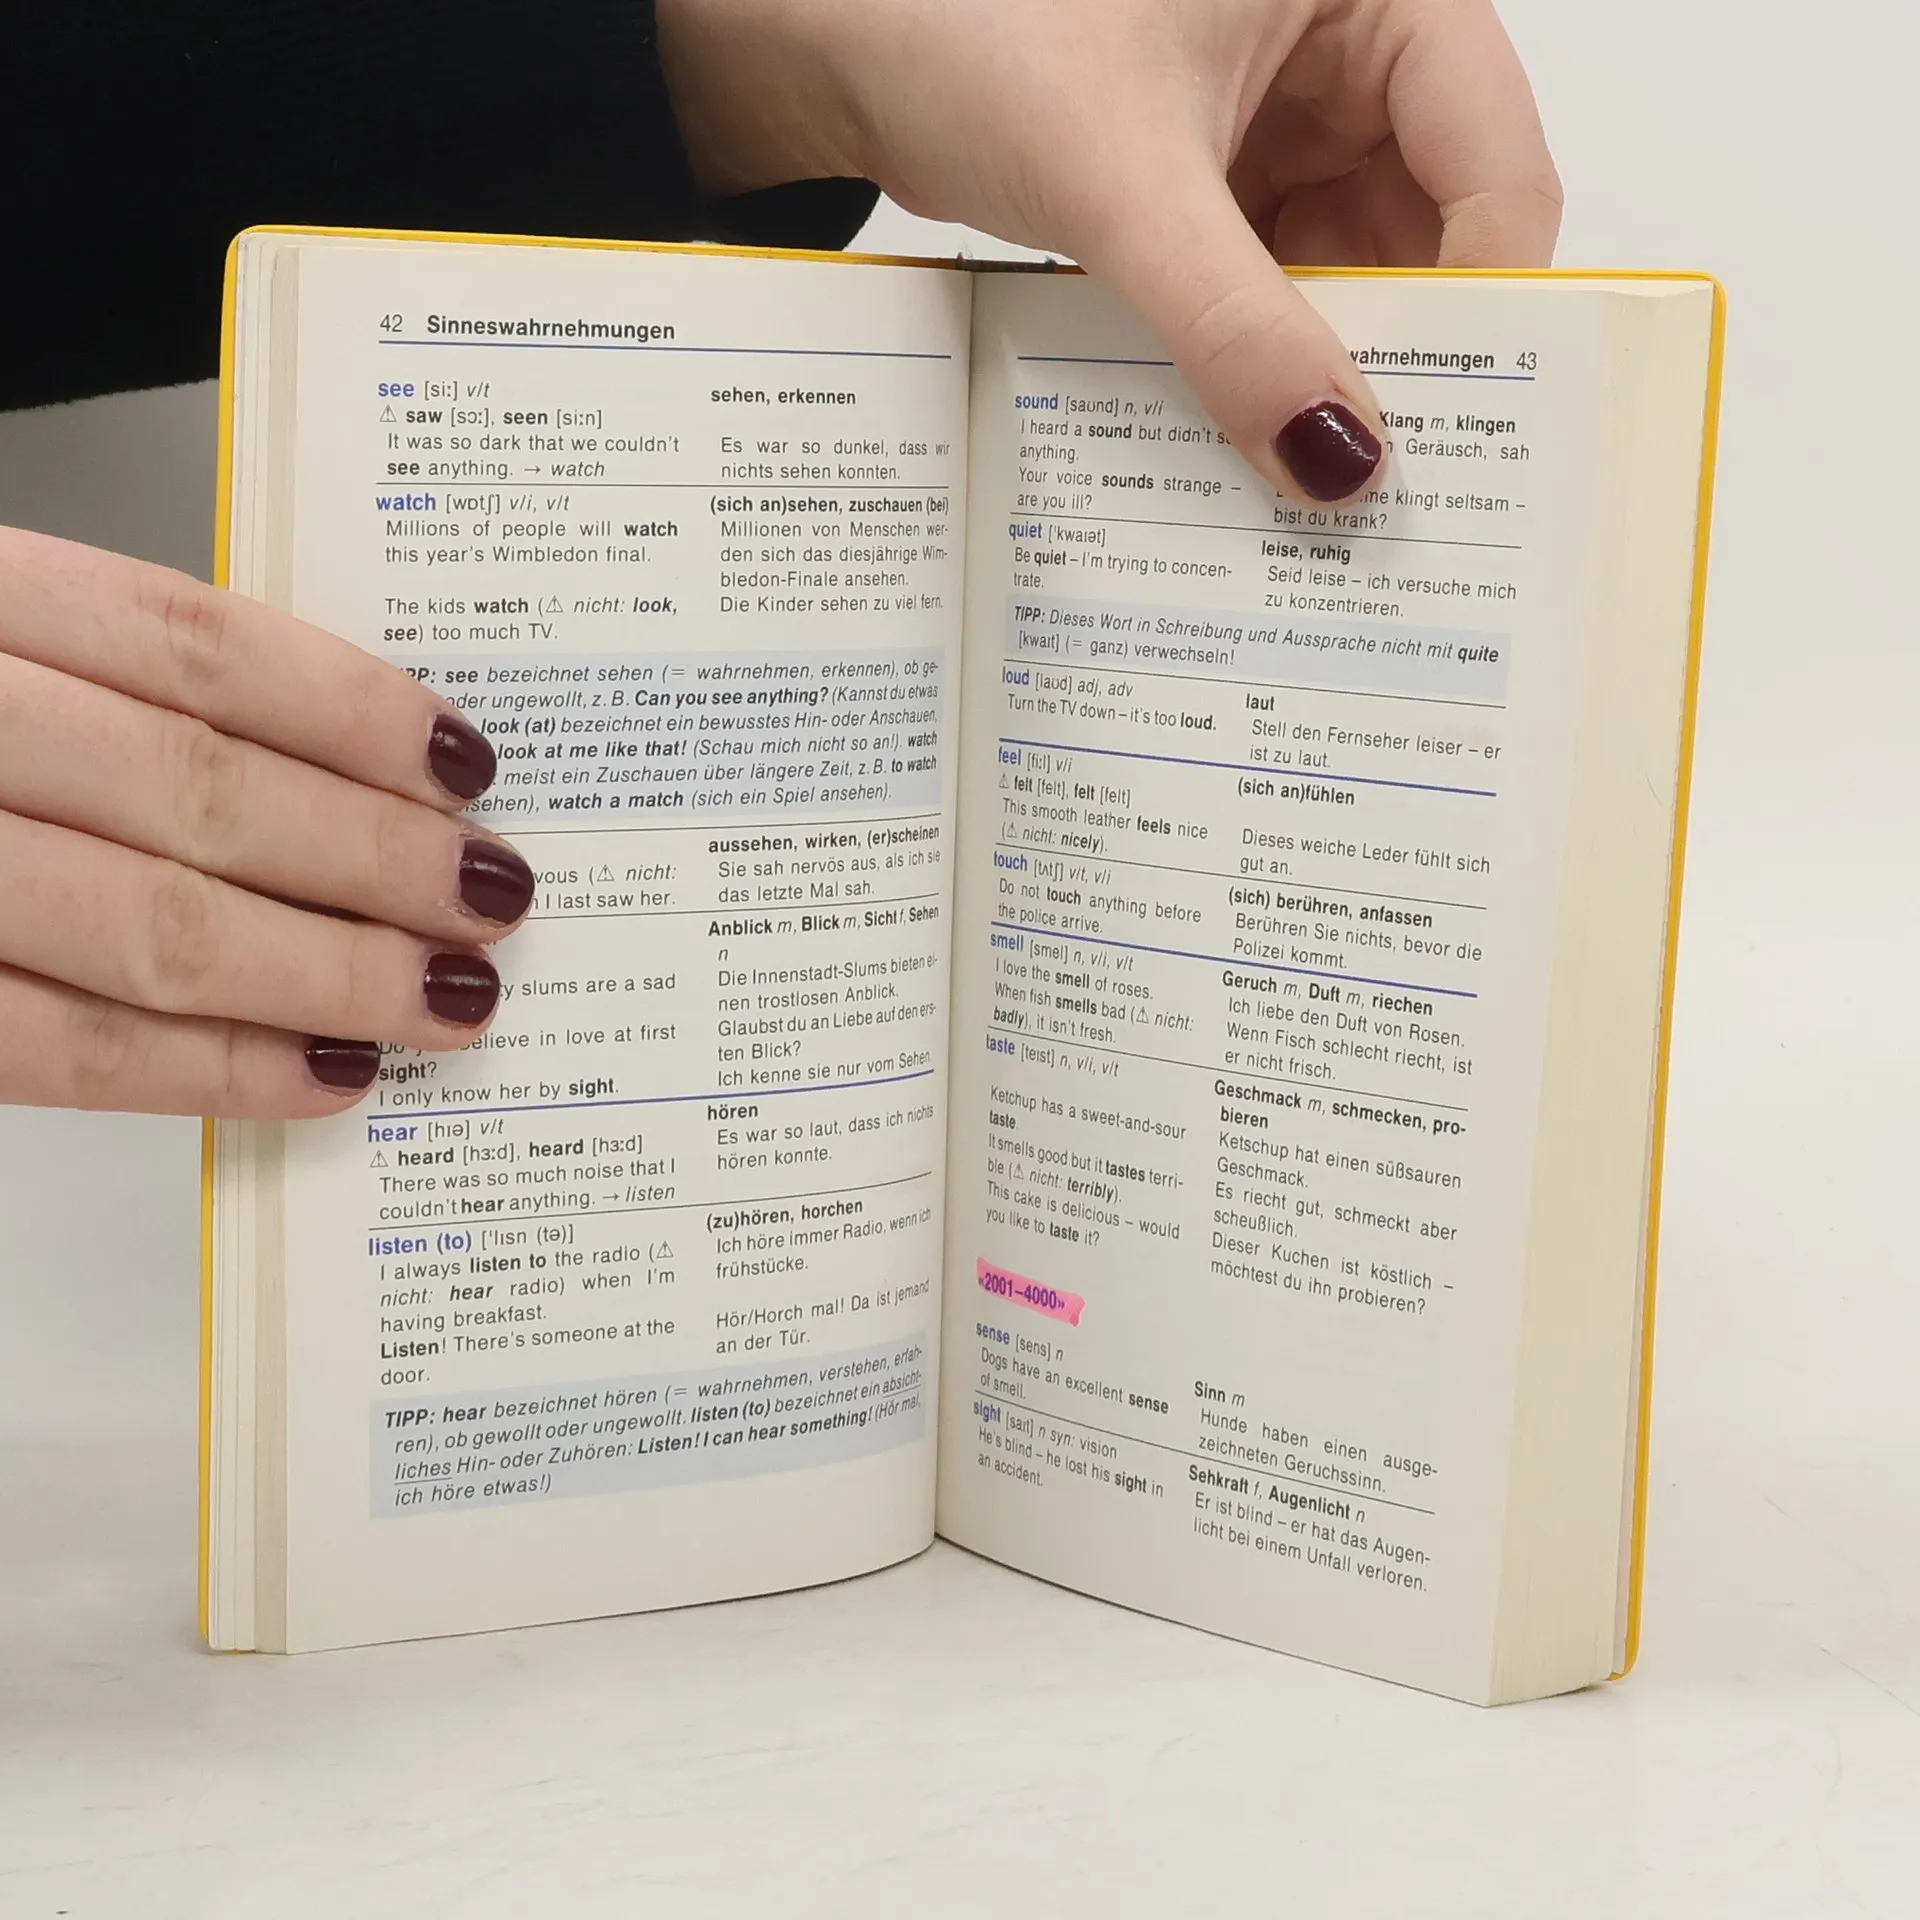 42 Sinneswahrnehmungen
see [siː] v/t
sehen, erkennen
⚠ saw [sɔː], seen [siːn]
It was so dark that we couldn't
see anything. → watch
Es war so dunkel, dass wir
nichts sehen konnten.
watch [wɒtʃ] v/i, v/t
(sich an)sehen, zuschauen (bei)
Millions of people will watch
this year's Wimbledon final.
Millionen von Menschen wer-
den sich das diesjährige Wim-
bledon-Finale ansehen.
The kids watch (⚠ nicht: look,
see) too much TV.
Die Kinder sehen zu viel fern.
see bezeichnet sehen (= wahrnehmen, erkennen), ob ge-
oder ungewollt, z. B. Can you see anything? (Kannst du etwas
look (at) bezeichnet ein bewusstes Hin- oder Anschauen,
look at me like that! (Schau mich nicht so an!). watch
meist ein Zuschauen über längere Zeit, z. B. to watch
sehen), watch a match (sich ein Spiel ansehen).
aussehen, wirken, (er)scheinen
(⚠ nicht:
I last saw her.
Sie sah nervös aus, als ich sie
das letzte Mal sah.
Anblick m, Blick m, Sicht f, Sehen
n
slums are a sad
Die Innenstadt-Slums bieten ei-
nen trostlosen Anblick.
believe in love at first
sight?
Glaubst du an Liebe auf den ers-
ten Blick?
I only know her by sight.
Ich kenne sie nur vom Sehen.
hear [hɪə] v/t
hören
⚠ heard [hɜːd], heard [hɜːd]
There was so much noise that I
couldn't hear anything. → listen
Es war so laut, dass ich nichts
hören konnte.
listen (to) ['lɪsn (tə)]
(zu)hören, horchen
I always listen to the radio (⚠
nicht: hear radio) when I'm
having breakfast.
Ich höre immer Radio, wenn ich
frühstücke.
Listen! There's someone at the
door.
Hör/Horch mal! Da ist jemand
an der Tür.
TIPP: hear bezeichnet hören (= wahrnehmen, verstehen, erfah-
ren), ob gewollt oder ungewollt. listen (to) bezeichnet ein absicht-
liches Hin- oder Zuhören: Listen! I can hear something! (Hör mal,
ich höre etwas!)
wahrnehmungen 43
sound [saʊnd] n, v/i
Klang m, klingen
I heard a sound but didn't
anything.
Geräusch, sah
Your voice sounds strange –
are you ill?
klingt seltsam –
bist du krank?
quiet ['kwaɪət]
leise, ruhig
Be quiet – I'm trying to concen-
trate.
Seid leise – ich versuche mich
zu konzentrieren.
TIPP: Dieses Wort in Schreibung und Aussprache nicht mit quite
[kwaɪt] (= ganz) verwechseln!
loud [laʊd] adj, adv
laut
Turn the TV down – it's too loud.
Stell den Fernseher leiser – er
ist zu laut.
feel [fiːl] v/i
(sich an)fühlen
⚠ felt [felt], felt [felt]
This smooth leather feels nice
(⚠ nicht: nicely).
Dieses weiche Leder fühlt sich
gut an.
touch [tʌtʃ] v/t, v/i
(sich) berühren, anfassen
Do not touch anything before
the police arrive.
Berühren Sie nichts, bevor die
Polizei kommt.
smell [smel] n, v/i, v/t
Geruch m, Duft m, riechen
I love the smell of roses.
Ich liebe den Duft von Rosen.
When fish smells bad (⚠ nicht:
badly), it isn't fresh.
Wenn Fisch schlecht riecht, ist
er nicht frisch.
taste [teɪst] n, v/i, v/t
Geschmack m, schmecken, pro-
bieren
Ketchup has a sweet-and-sour
taste.
Ketschup hat einen süßsauren
Geschmack.
It smells good but it tastes terri-
ble (⚠ nicht: terribly).
Es riecht gut, schmeckt aber
scheußlich.
This cake is delicious – would
you like to taste it?
Dieser Kuchen ist köstlich –
möchtest du ihn probieren?
«2001–4000»
sense [sens] n
Sinn m
Dogs have an excellent sense
of smell.
Hunde haben einen ausge-
zeichneten Geruchssinn.
sight [saɪt] n syn: vision
Sehkraft f, Augenlicht n
He's blind – he lost his sight in
an accident.
Er ist blind – er hat das Augen-
licht bei einem Unfall verloren.